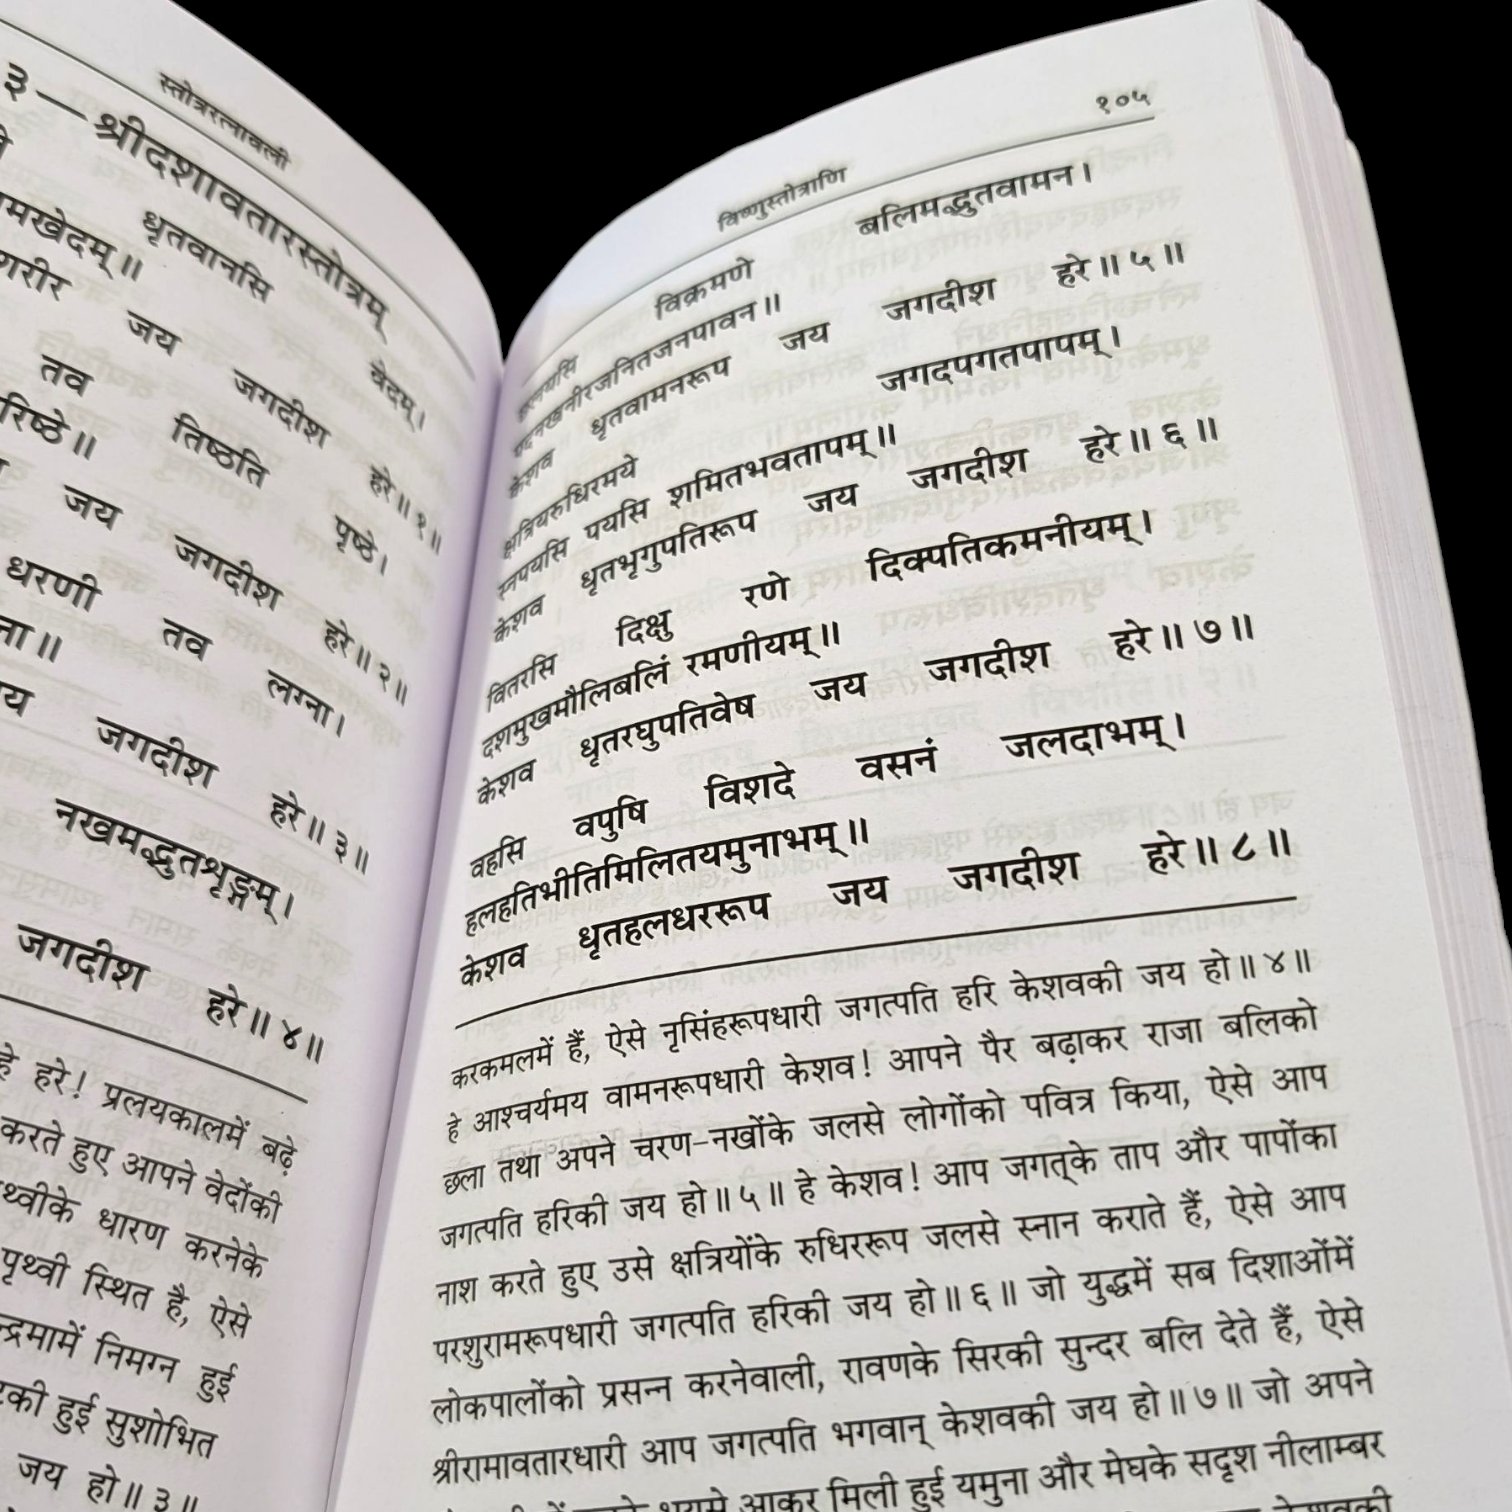 स्तोत्ररत्नावली
३—श्रीदशावतारस्तोत्रम्
धृतवानसि वेदम्।
मखेदम्॥
शरीर जय जगदीश हरे॥१॥
तव तिष्ठति पृष्ठे।
रिष्ठे॥
जय जगदीश हरे॥२॥
धरणी तव लग्ना।
जगदीश हरे॥३॥
नखमद्भुतशृङ्गम्।
जगदीश हरे॥४॥
हे हरे! प्रलयकालमें बढ़े
करते हुए आपने वेदोंकी
पृथ्वीके धारण करनेके
पृथ्वी स्थित है, ऐसे
चन्द्रमामें निमग्न हुई
हुई सुशोभित
जय हो॥३॥
विष्णुस्तोत्राणि १०५
छलयसि विक्रमणे बलिमद्भुतवामन।
पदनखनीरजनितजनपावन॥
केशव धृतवामनरूप जय जगदीश हरे॥५॥
क्षत्रियरुधिरमये जगदपगतपापम्।
स्नपयसि पयसि शमितभवतापम्॥
केशव धृतभृगुपतिरूप जय जगदीश हरे॥६॥
वितरसि दिक्षु रणे दिक्पतिकमनीयम्।
दशमुखमौलिबलिं रमणीयम्॥
केशव धृतरघुपतिवेष जय जगदीश हरे॥७॥
वहसि वपुषि विशदे वसनं जलदाभम्।
हलहतिभीतिमिलितयमुनाभम्॥
केशव धृतहलधररूप जय जगदीश हरे॥८॥
करकमलमें हैं, ऐसे नृसिंहरूपधारी जगत्पति हरि केशवकी जय हो॥४॥
हे आश्चर्यमय वामनरूपधारी केशव! आपने पैर बढ़ाकर राजा बलिको
छला तथा अपने चरण-नखोंके जलसे लोगोंको पवित्र किया, ऐसे आप
जगत्पति हरिकी जय हो॥५॥ हे केशव! आप जगत्के ताप और पापोंका
नाश करते हुए उसे क्षत्रियोंके रुधिररूप जलसे स्नान कराते हैं, ऐसे आप
परशुरामरूपधारी जगत्पति हरिकी जय हो॥६॥ जो युद्धमें सब दिशाओंमें
लोकपालोंको प्रसन्न करनेवाली, रावणके सिरकी सुन्दर बलि देते हैं, ऐसे
श्रीरामावतारधारी आप जगत्पति भगवान् केशवकी जय हो॥७॥ जो अपने
भयसे आकर मिली हुई यमुना और मेघके सदृश नीलाम्बर
केशवकी